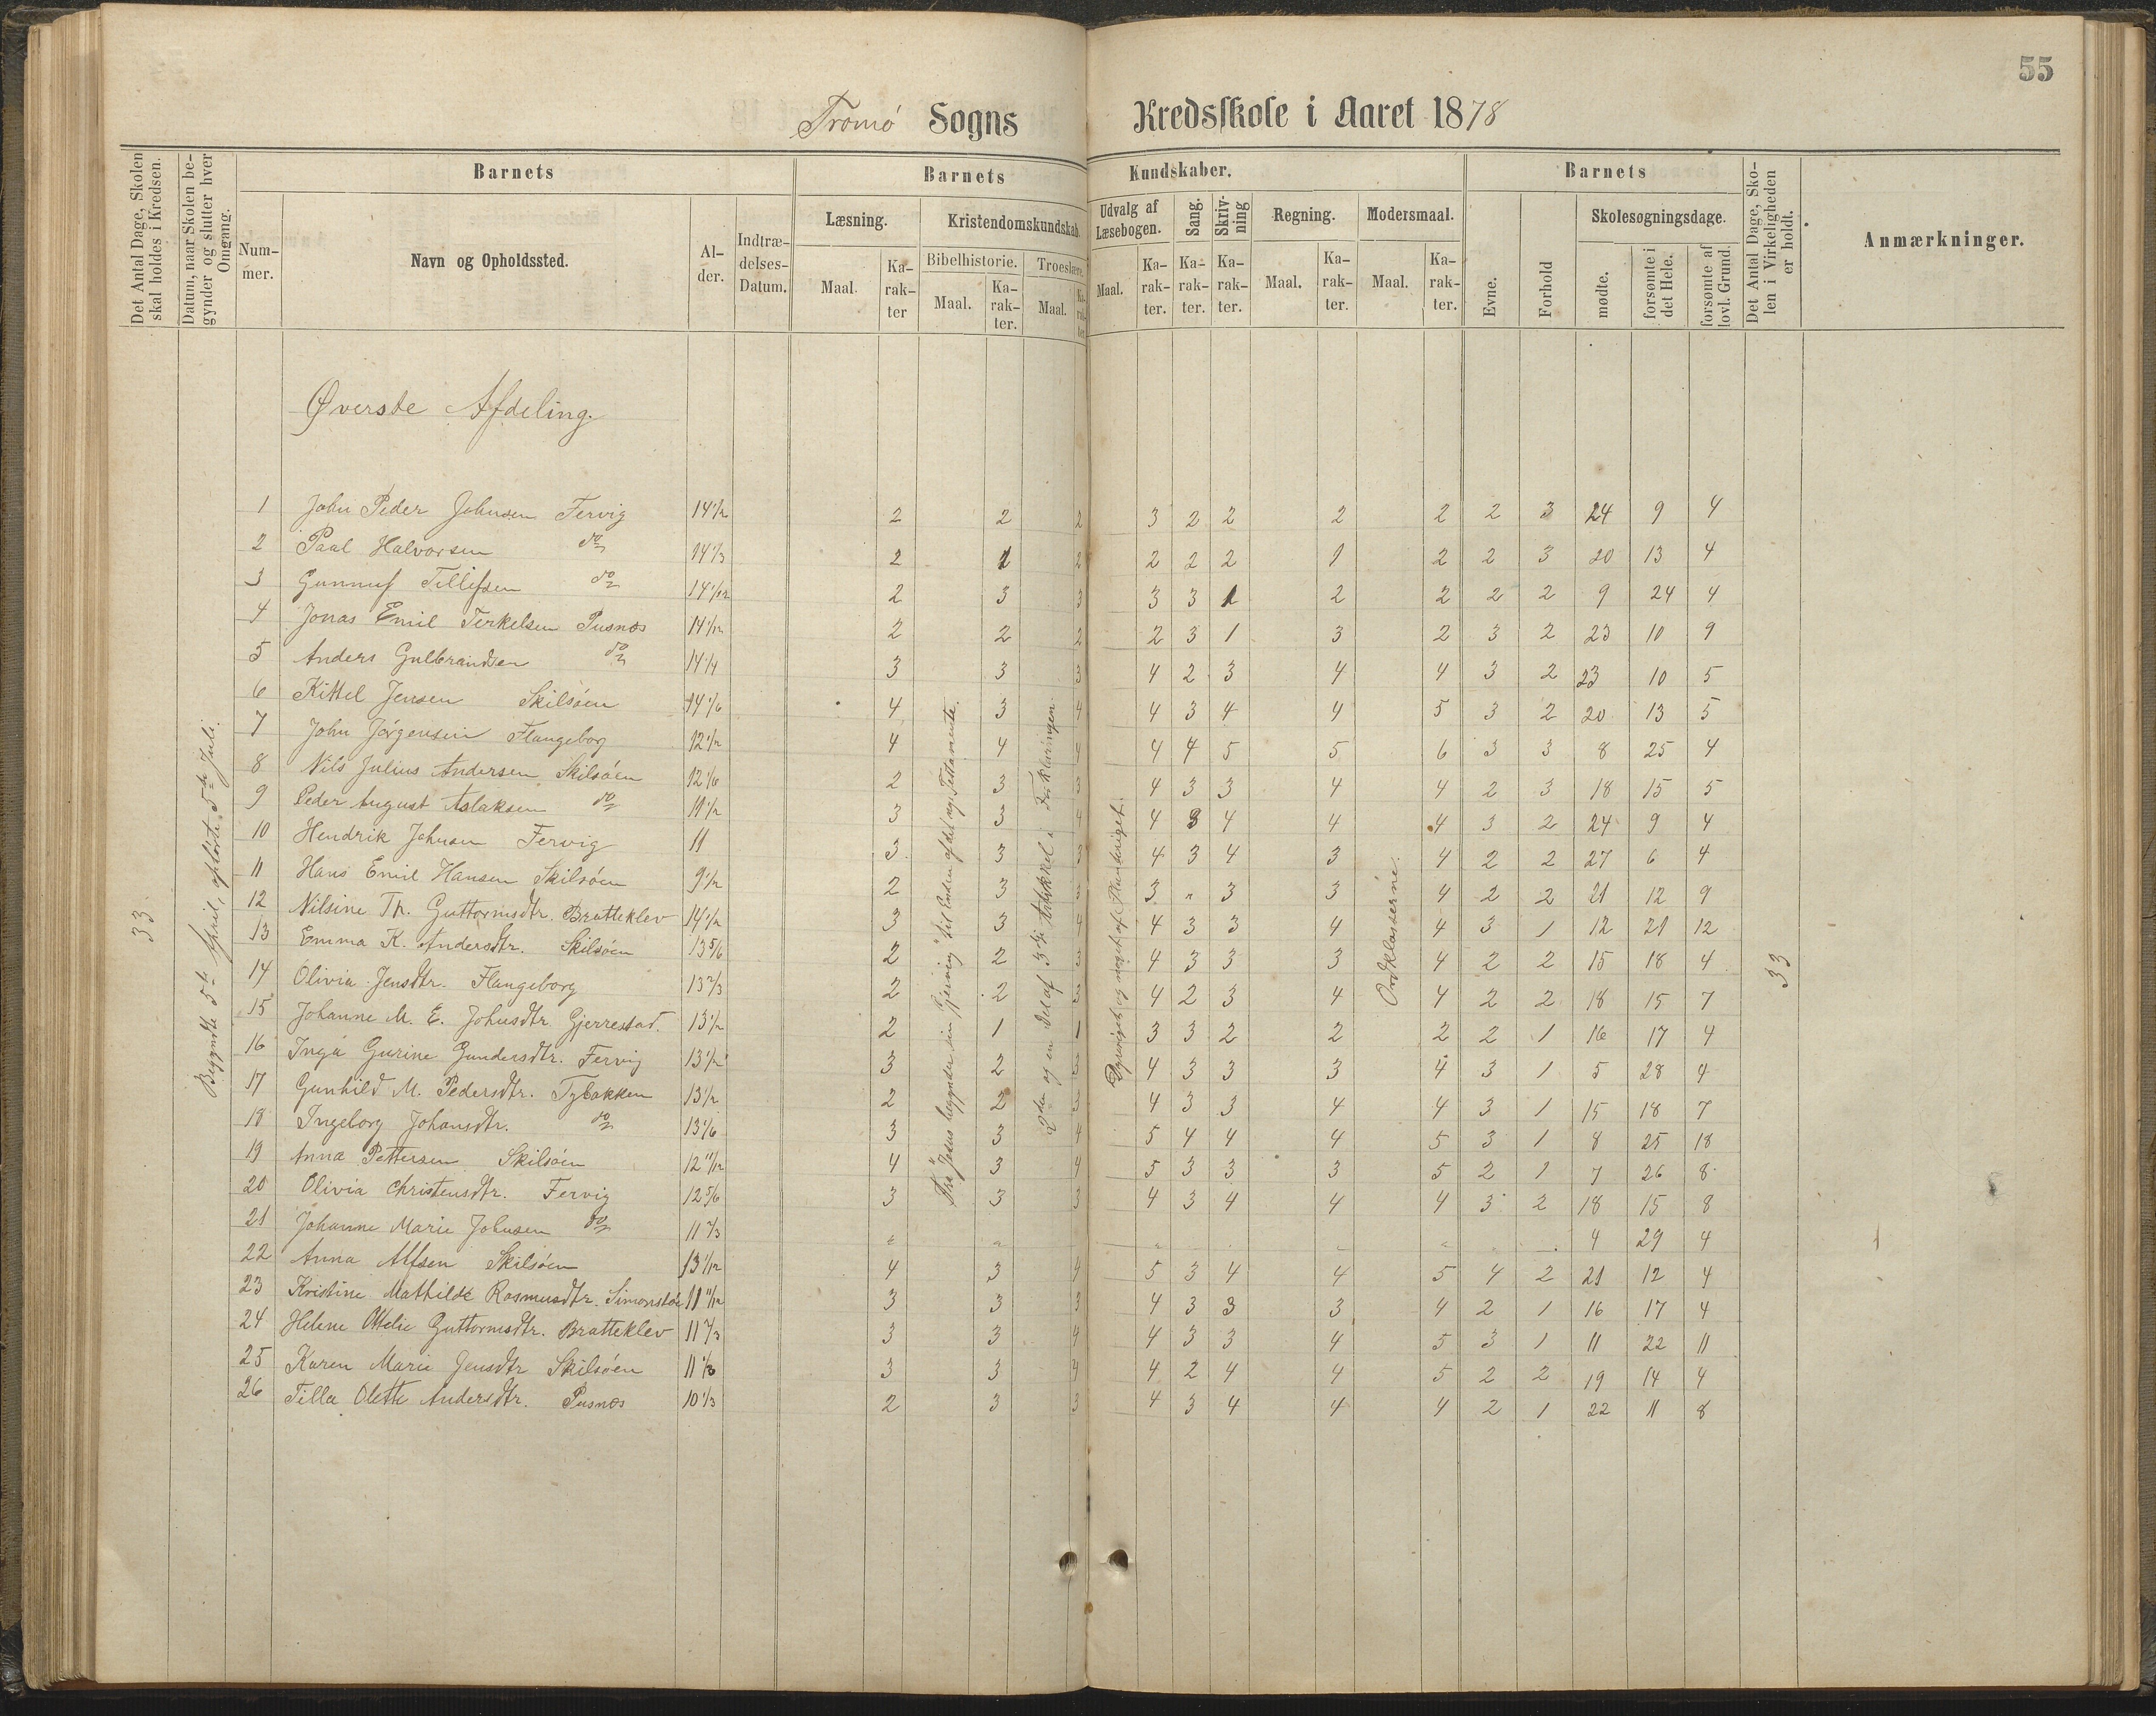 55
Tromö Sogns Kredsskole i Aaret 1878
Det Antal Dage, Skolen skal holdes i Kredsen.
Datum, naar Skolen begynder og slutter hver Omgang.
Barnets
Nummer.
Navn og Opholdssted.
Alder.
Indtrædelses-Datum.
Barnets Kundskaber.
Læsning.
Maal.
Karakter
Kristendomskundskab.
Bibelhistorie.
Maal.
Karakter.
Troeslære.
Maal.
Karakter
Udvalg af Læsebogen.
Maal.
Karakter.
Sang.
Karakter.
Skrivning
Karakter.
Regning.
Maal.
Karakter.
Modersmaal.
Maal.
Karakter.
Barnets
Evne.
Forhold
Skolesøgningsdage.
mødte.
forsømte i det Hele.
forsømte af lovl. Grund.
Det Antal Dage, Skolen i Virkeligheden er holdt.
Anmærkninger.
Øverste Afdeling.
33
Begyndte 5te April, ophörte 5te Juli.
1 John Peder Johnsen Fervig 14 1/2 2 2 2 3 2 2 2 2 2 3 24 9 4
2 Paal Halvorsen do 14 1/3 2 1 2 2 2 2 1 2 2 3 20 13 4
3 Gunnuf Tellefsen do 14 1/12 2 3 3 3 3 1 2 2 2 2 9 24 4
4 Jonas Emil Terkelsen Pusnæs 14 1/12 2 2 2 2 3 1 3 2 3 2 23 10 9
5 Anders Gulbrandsen do 14 1/4 3 3 3 4 2 3 4 4 3 2 23 10 5
6 Kittel Jensen Skilsöen 14 1/6 4 3 4 4 3 4 4 5 3 2 20 13 5
7 John Jörgensen Flangeborg 12 1/2 4 4 4 4 4 5 5 6 3 3 8 25 4
8 Nils Julius Andersen Skilsöen 12 1/6 2 3 3 4 3 3 4 4 2 3 18 15 5
9 Peder August Aslaksen do 11 1/2 3 3 4 4 3 4 4 4 3 2 24 9 4
10 Hendrik Johnsen Fervig 11 3 3 3 4 3 4 3 4 2 2 27 6 4
11 Hans Emil Hansen Skilsöen 9 1/2 2 3 3 3 " 3 3 4 2 2 21 12 9
12 Nilsine Th. Guttormsdtr. Bratteklev 14 1/2 3 3 4 4 3 3 4 4 3 1 12 21 12
13 Emma K. Andersdtr. Skilsöen 13 5/6 2 2 3 4 3 3 3 4 2 2 15 18 4
14 Olivia Jensdtr. Flangeborg 13 2/3 2 2 3 4 2 3 4 4 2 2 18 15 7
15 Johanne M. E. Johnsdtr Gjerrestad. 13 1/2 2 1 1 3 3 2 2 2 2 1 16 17 4
16 Inga Gurine Gundersdtr. Fervig 13 1/2 3 2 3 4 3 3 3 4 3 1 5 28 4
17 Gunhild M. Pedersdtr. Tybakken 13 1/2 2 2 3 4 3 3 4 4 3 1 15 18 7
18 Ingeborg Johansdtr. do 13 1/6 3 3 4 5 4 4 4 5 3 1 8 25 18
19 Anna Pettersen Skilsöen 12 11/12 4 3 4 5 3 3 3 5 2 1 7 26 8
20 Olivia Christensdtr. Fervig 12 5/6 3 3 3 4 3 4 4 4 3 2 18 15 8
21 Johanne Marie Johnsen do 11 2/3 " " " " " 4 29 4
22 Anna Alfsen Skilsöen 13 1/12 4 3 4 5 3 4 4 5 4 2 21 12 4
23 Kristine Mathilde Rasmusdtr. 11 11/12 3 3 3 4 3 3 3 4 2 1 16 17 4
24 Helene Ottelie Guttormsdtr. Bratteklev 11 2/3 3 3 4 4 3 3 4 5 3 1 11 22 11
25 Karen Marie Jensdtr Skilsöen 11 1/3 3 3 4 4 2 4 4 5 2 2 19 14 4
26 Tilla Olette Andersdtr. Pusnæs 10 1/3 2 3 3 4 3 4 4 4 2 1 22 11 8
Fra "Jesus begynder sin Gjerning" til Enden af det ny Testamente.
2den og en Del af 3die Artikkel i Forklaringen
Dyreriget og noget af Planteriget.
Ordklasserne.
33